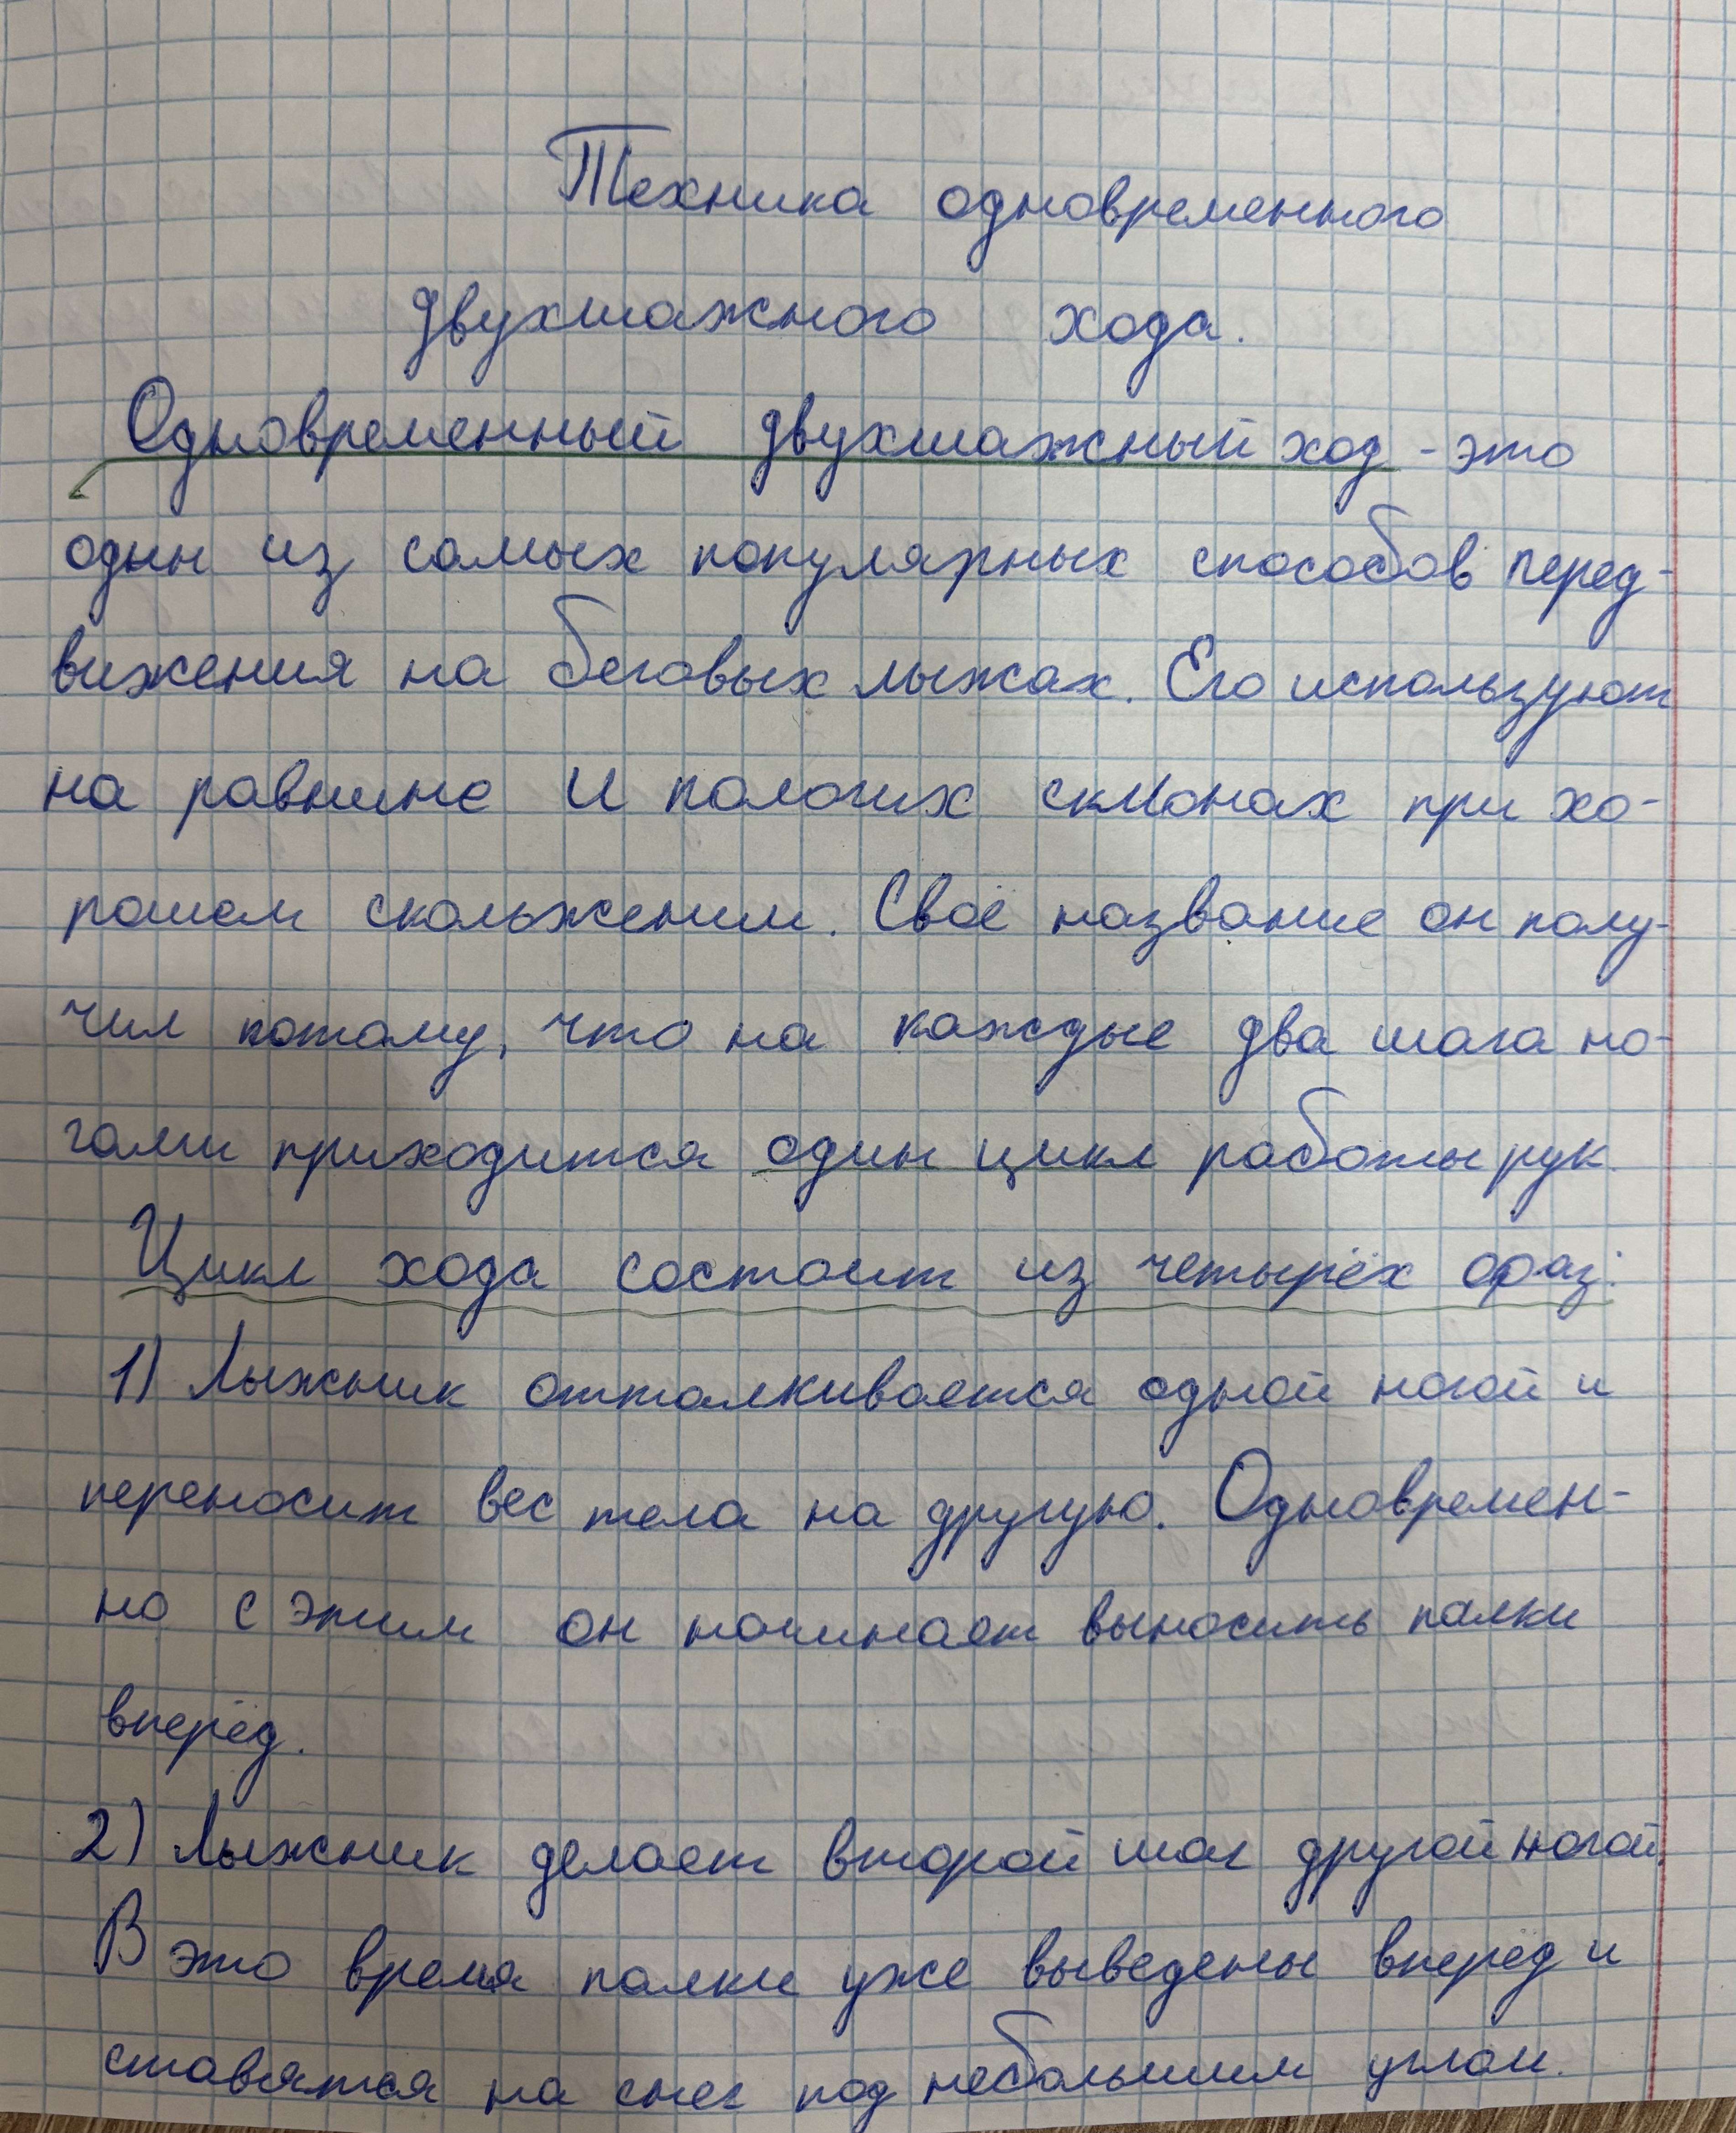 Техника одновременного
двухшажного хода.
Одновременный двухшажный ход - это
один из самых популярных способов перед-
вижения на беговых лыжах. Его используют
на равнине и пологих склонах при хо-
рошем скольжении. Своё название он полу-
чил потому, что на каждые два шага но-
гами приходится один цикл работы рук.
Цикл хода состоит из четырёх фаз:
1) Лыжник отталкивается одной ногой и
переносит вес тела на другую. Одновремен-
но с этим он начинает выносить палки
вперёд.
2) Лыжник делает второй шаг другой ногой.
В это время палки уже выведены вперёд и
ставятся на снег под небольшим углом.